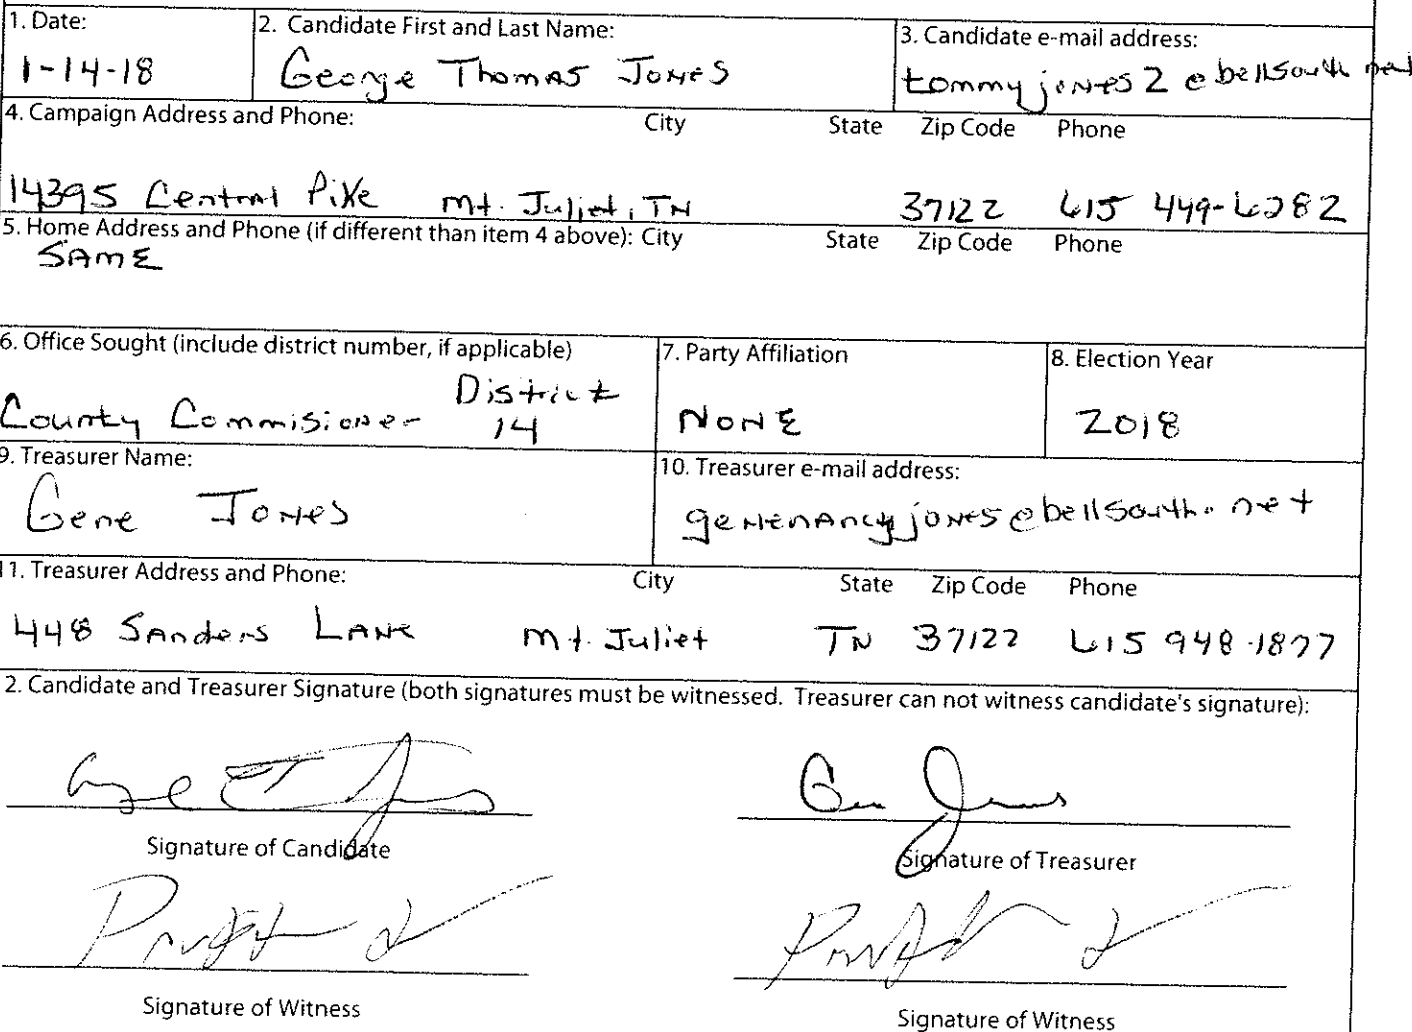 1. Date: 2. Candidate First and Last Name: 3. Candidate e-mail address:
1-14-18 George Thomas Jones tommyjones2@bellsouth net
4. Campaign Address and Phone: City State Zip Code Phone
14395 Central Pike Mt. Juliet, TN 37122 615 449-6282
5. Home Address and Phone (if different than item 4 above): City State Zip Code Phone
SAME
6. Office Sought (include district number, if applicable) 7. Party Affiliation 8. Election Year
County Commisioner District 14 NONE 2018
9. Treasurer Name: 10. Treasurer e-mail address:
Gene Jones genenancyjones@bellsouth.net
11. Treasurer Address and Phone: City State Zip Code Phone
448 Sanders Lane Mt. Juliet TN 37122 615 948-1877
2. Candidate and Treasurer Signature (both signatures must be witnessed. Treasurer can not witness candidate's signature):
Gene Jones
Signature of Candidate Signature of Treasurer
Signature of Witness Signature of Witness